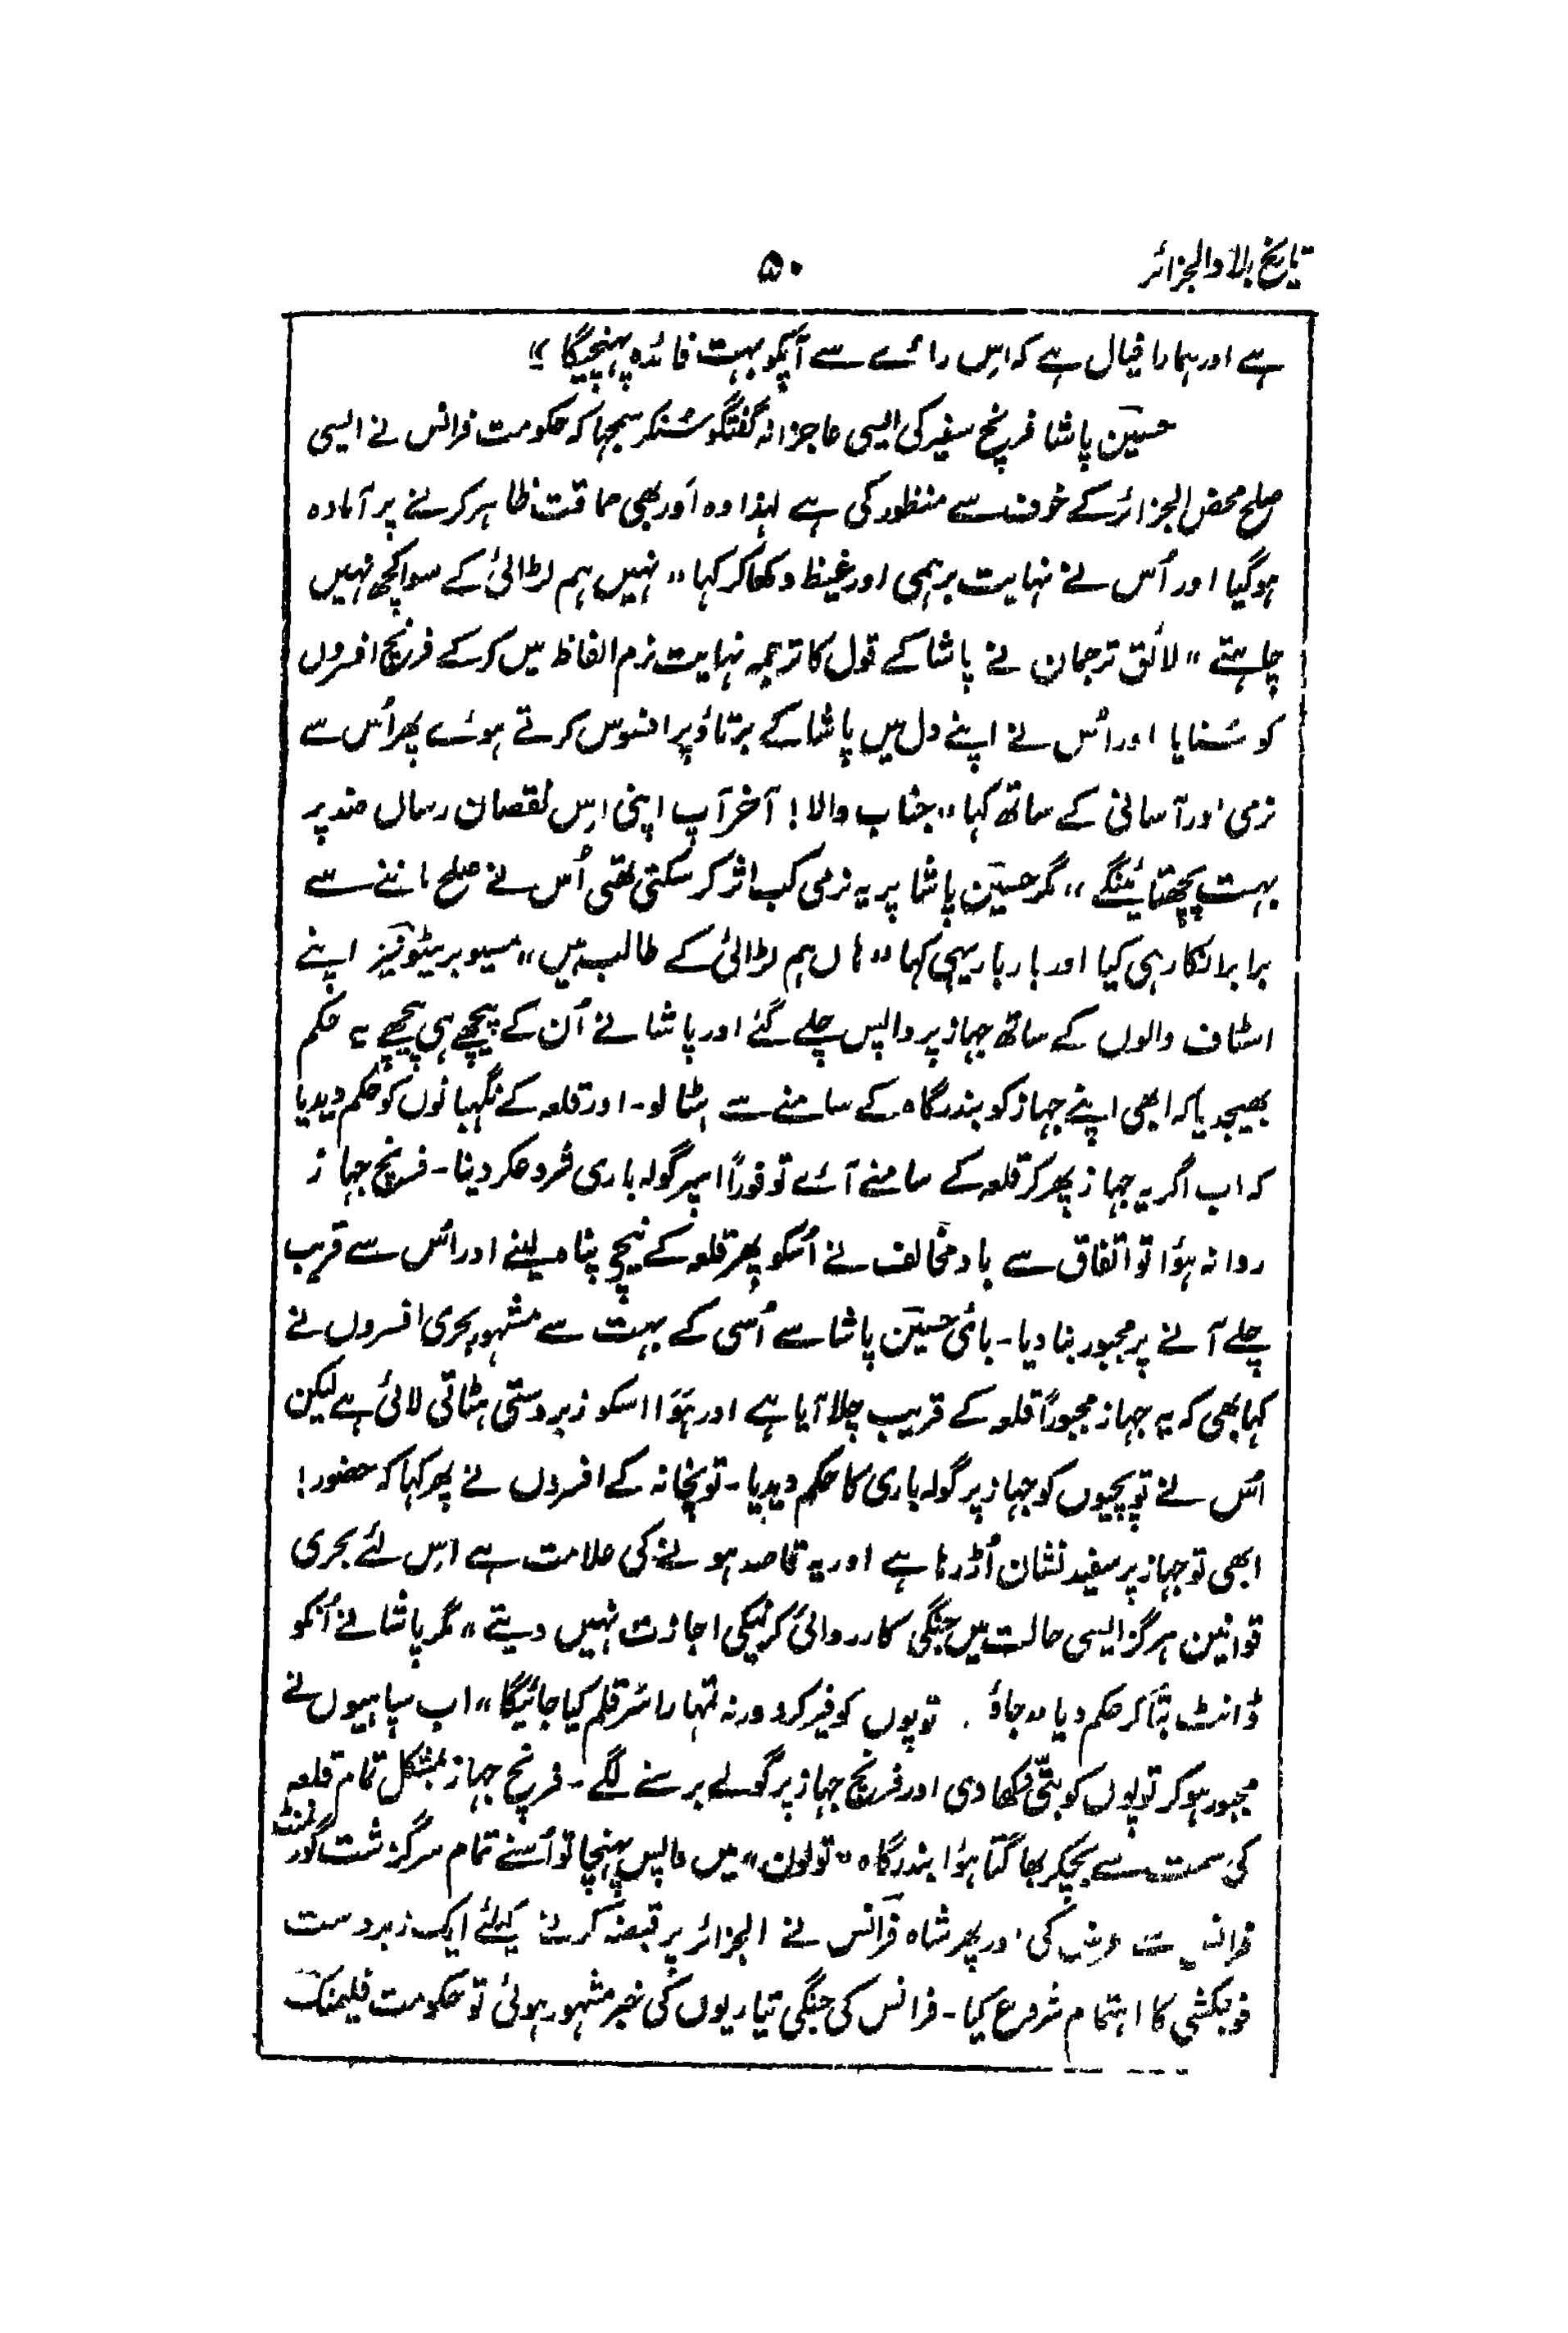 تاریخ بلاد الجزائر
۵۰
ہے اور ہمارا خیال ہے کہ اِس رائے سے آپکو بہت فائدہ پہنچیگا ؛؛
حسین پاشا فرنچ سفیر کی ایسی عاجزانہ گفتگو سُنکر سمجہا کہ حکومت فرانس نے ایسی
صلح محض الجزائر کے خوف سے منظور کی ہے لہذا وہ اَور بھی حماقت ظاہر کرنے پر آمادہ
ہوگیا اور اُس نے نہایت برہمی اور غیظ دکھا کر کہا ،، نہیں ہم لڑائی کے سوا کچھ نہیں
چاہتے ،، لائق ترجمان نے پاشا کے قول کا ترجمہ نہایت نرم الفاظ میں کرکے فرنچ افسروں
کو سُنایا اور اُس نے اپنے دل میں پاشا کے برتاؤ پر افسوس کرتے ہوئے پھر اُس سے
نرمی اور آسانی کے ساتھ کہا ،، جناب والا! آخر آپ اپنی اِس نقصان رساں ضد پر
بہت پچھتائینگے ،، مگر حسین پاشا پر یہ نرمی کب اثر کرسکتی تھی اُس نے صلح ماننے سے
برابر انکار ہی کیا اور بار بار یہی کہا ،، ہاں ہم لڑائی کے طالب ہیں ،، مسیو بریٹونیز اپنے
اسٹاف والوں کے ساتھ جہاز پر واپس چلے گئے اور پاشا نے اُن کے پیچھے ہی پیچھے یہ حکم
بھیجدیا کہ ابھی اپنے جہاز کو بندرگاہ کے سامنے سے ہٹا لو۔ اور قلعہ کے نگہبانوں کو حکم دیدیا
کہ اب اگر یہ جہاز پھر کر قلعہ کے سامنے آئے تو فوراً اسپر گولہ باری شروع کر دینا۔ فرنچ جہاز
روانہ ہؤا تو اتفاق سے باد مخالف نے اُسکو پھر قلعہ کے نیچے پناہ لینے اور اُس سے قریب
چلے آنے پر مجبور بنا دیا۔ بائی حسین پاشا سے اُسی کے بہت سے مشہور بحری افسروں نے
کہا بھی کہ یہ جہاز مجبوراً قلعہ کے قریب چلا آیا ہے اور ہَوَا اسکو زبردستی ہٹاتی لائی ہے لیکن
اُس نے توپچیوں کو جہاز پر گولہ باری کا حکم دیدیا۔ توپخانہ کے افسروں نے پھر کہا کہ حضور!
ابھی تو جہاز پر سفید نشان اُڑ رہا ہے اور یہ قاصد ہونے کی علامت ہے اِس لئے بحری
قوانین ہرگز ایسی حالت میں جنگی کارروائی کرنیکی اجازت نہیں دیتے ،، مگر پاشا نے اُنکو
ڈانٹ بتا کر حکم دیا ،، جاؤ . توپوں کو فیر کرو ورنہ تمہارا سَر قلم کیا جائیگا ،، اب سپاہیوں نے
مجبور ہوکر توپوں کو بتّی دکھا دی اور فرنچ جہاز پر گولے برسنے لگے۔ فرنچ جہاز بمشکل تمام قلعہ
کی سمت سے بچکر بھاگتا ہؤا بندرگاہ ،، تولون ،، میں واپس پہنچا تو اُسنے تمام سرگزشت گورنمنٹ
فرانس سے عرض کی اور پھر شاہ فرانس نے الجزائر پر قبضہ کرنے کیلئے ایک زبردست
فوجکشی کا اہتمام شروع کیا۔ فرانس کی جنگی تیاریوں کی خبر مشہور ہوئی تو حکومت فلیمنک